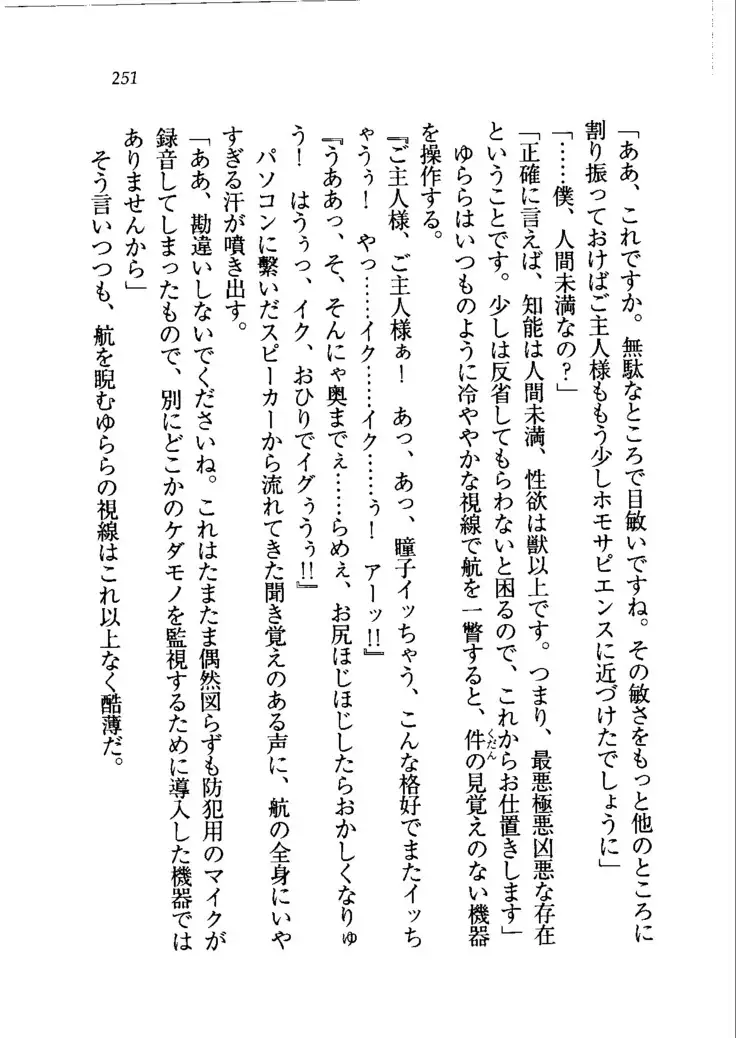 251
「ああ、これですか。無駄なところで目敏いですね。その敏さをもっと他のところに
割り振っておけばご主人様ももう少しホモサピエンスに近づけたでしょうに」
「……僕、人間未満なの？」
「正確に言えば、知能は人間未満、性欲は獣以上です。つまり、最悪極悪凶悪な存在
ということです。少しは反省してもらわないと困るので、これからお仕置きします」
ゆららはいつものように冷ややかな視線で航を一瞥すると、件の見覚えのない機器
くだん
を操作する。
『ご主人様、ご主人様ぁ！　あっ、あっ、瞳子イッちゃう、こんな格好でまたイッち
ゃうぅ！　やっ……イク……イク……ぅ！　アーッ!!』
『うああっ、そ、そんにゃ奥までぇ……らめぇ、お尻ほじほじしたらおかしくなりゅ
う！　はうぅっ、イク、おひりでイグぅうぅ!!』
パソコンに繋いだスピーカーから流れてきた聞き覚えのある声に、航の全身にいや
すぎる汗が噴き出す。
「ああ、勘違いしないでくださいね。これはたまたま偶然図らずも防犯用のマイクが
録音してしまったもので、別にどこかのケダモノを監視するために導入した機器では
ありませんから」
そう言いつつも、航を睨むゆららの視線はこれ以上なく酷薄だ。